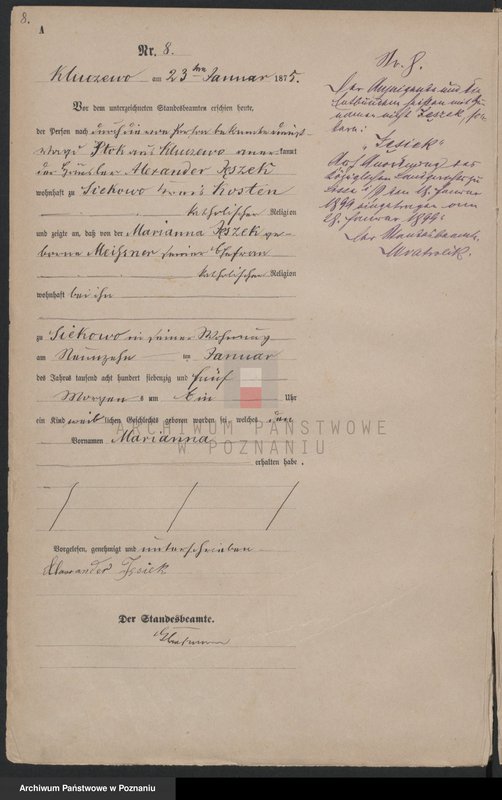 8.
A
Nr. 8.
Kluczewo am 23ten Januar 1875.
Vor dem unterzeichneten Standesbeamten erschien heute,
der Person nach durch die von Person bekannte
Ptok aus Kluczewo anerkannt
der Häusler Alexander Iszek
wohnhaft zu Siekowo Kreis Kosten
katholischer Religion
und zeigte an, daß von der Marianna Iszek ge-
borene Meißner seiner Ehefrau
katholischer Religion
wohnhaft bei ihm
zu Siekowo in seiner Wohnung
am Neunzehn ten Januar
des Jahres tausend acht hundert siebenzig und fünf
Morgens um Ein Uhr
ein Kind weiblichen Geschlechts geboren worden sei, welches den
Vornamen Marianna
erhalten habe.
Vorgelesen, genehmigt und unterschrieben
Alexander Jesiek
Der Standesbeamte.
Nr. 8.
Der Anzeigende und die
Entbundene heißen mit Zu-
namen nicht Ieszek son-
dern:
"Jesiek"
Auf Anordnung des
Königlichen Landgerichts zu
Lissa i/P. vom 18. Januar
1899 eingetragen am
28. Januar 1899.
Der Standesbeamte.
ARCHIWUM PAŃSTWOWE
W POZNANIU
Archiwum Państwowe w Poznaniu